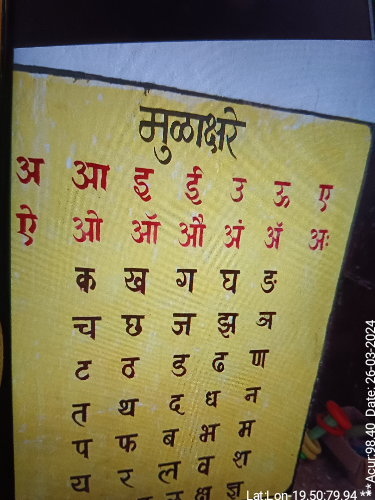 मुळाक्षरे
अ आ इ ई उ ऊ ए
ऐ ओ ऑ औ अं ॲ अः
क ख ग घ ङ
च छ ज झ ञ
ट ठ ड ढ ण
त थ द ध न
प फ ब भ म
य र ल व श
क्ष ज्ञ
Lat:Lon-19.50:79.94 *** Acur:98.40 Date: 26-03-2024